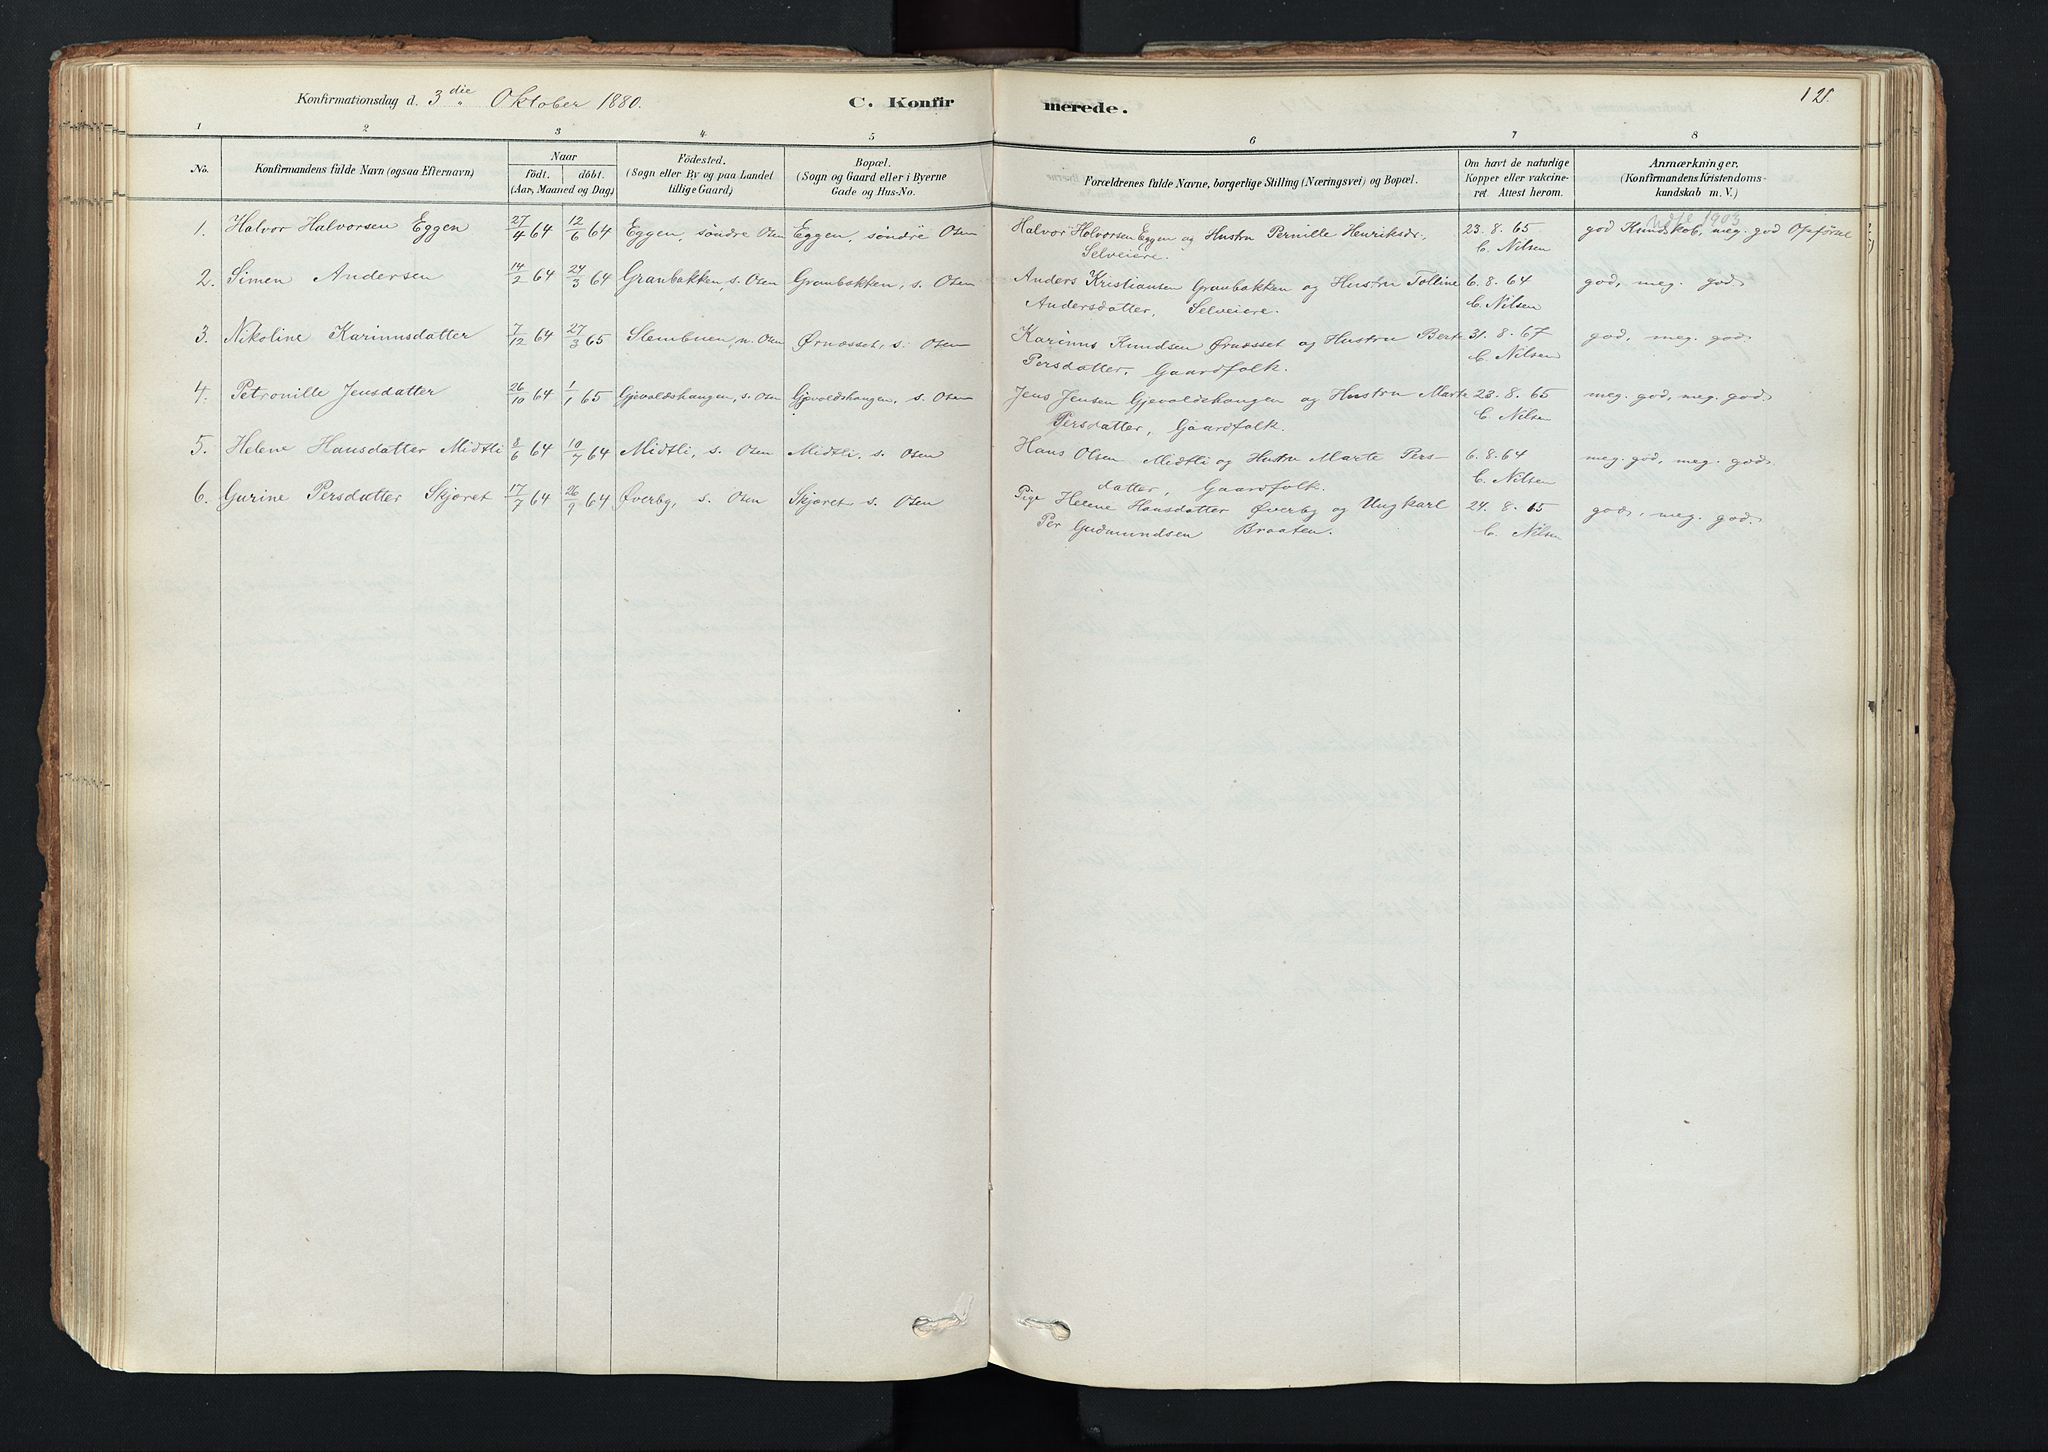 Konfirmationsdag d. 3die Oktober 1880. C. Konfir merede. 121.
1 2 3 4 5 6 7 8
No. Konfirmandens fulde Navn (ogsaa Efternavn) Naar födt. döbt. (Aar, Maaned og Dag.) Födested. (Sogn eller By og paa Landet tillige Gaard.) Bopæl. (Sogn og Gaard eller i Byerne Gade og Hus-No. Forældrenes fulde Navne, borgerlige Stilling (Næringsvei) og Bopæl. Om havt de naturlige Kopper eller vakcineret. Attest herom. Anmærkninger. (Konfirmandens Kristendomskundskab m. V.)
1. Halvor Halvorsen Eggen 27/4 64 12/6 64 Eggen, söndre Osen Eggen, söndre Osen Halvor Halvorsen Eggen og Hustru Pernille Henriksdr., 23.8.65 god Kundskab, meg. god Opförsel
Selveiere. C. Nilsen 1903
2. Simen Andersen 14/2 64 24/3 64 Granbakken, s. Osen Granbakken, s. Osen Anders Kristiansen Granbakken og Hustru Tolline 6.8.64 god, meg. god
Andersdatter, Selveiere. C. Nilsen
3. Nikoline Karinusdatter 7/12 64 27/3 65 Stenbuen, n. Osen Ørnæsset, s. Osen Karinus Knudsen Ørnæsset og Hustru Berte 31.8.67 god, meg. god
Persdatter, Gaardfolk. C. Nilsen
4. Petronille Jensdatter 26/10 64 1/1 65 Gjevoldshaugen, s. Osen Gjevoldshaugen, s. Osen Jens Jensen Gjevoldshaugen og Hustru Marte 23.8.65 meg. god, meg. god
Persdatter, Gaardfolk. C. Nilsen
5. Helene Hansdatter Midtli 8/6 64 10/7 64 Midtli, s. Osen Midtli, s. Osen Hans Olsen Midtli og Hustru Marte Pers- 6.8.64 meg. god, meg. god
datter, Gaardfolk. C. Nilsen
6. Gurine Persdatter Skjæret 17/7 64 26/9 64 Øverby, s. Osen Skjæret s. Osen Pige Helene Hansdatter Øverby og Ungkarl 24.8.65 god, meg. god.
Per Gudmundsen Braaten. C. Nilsen